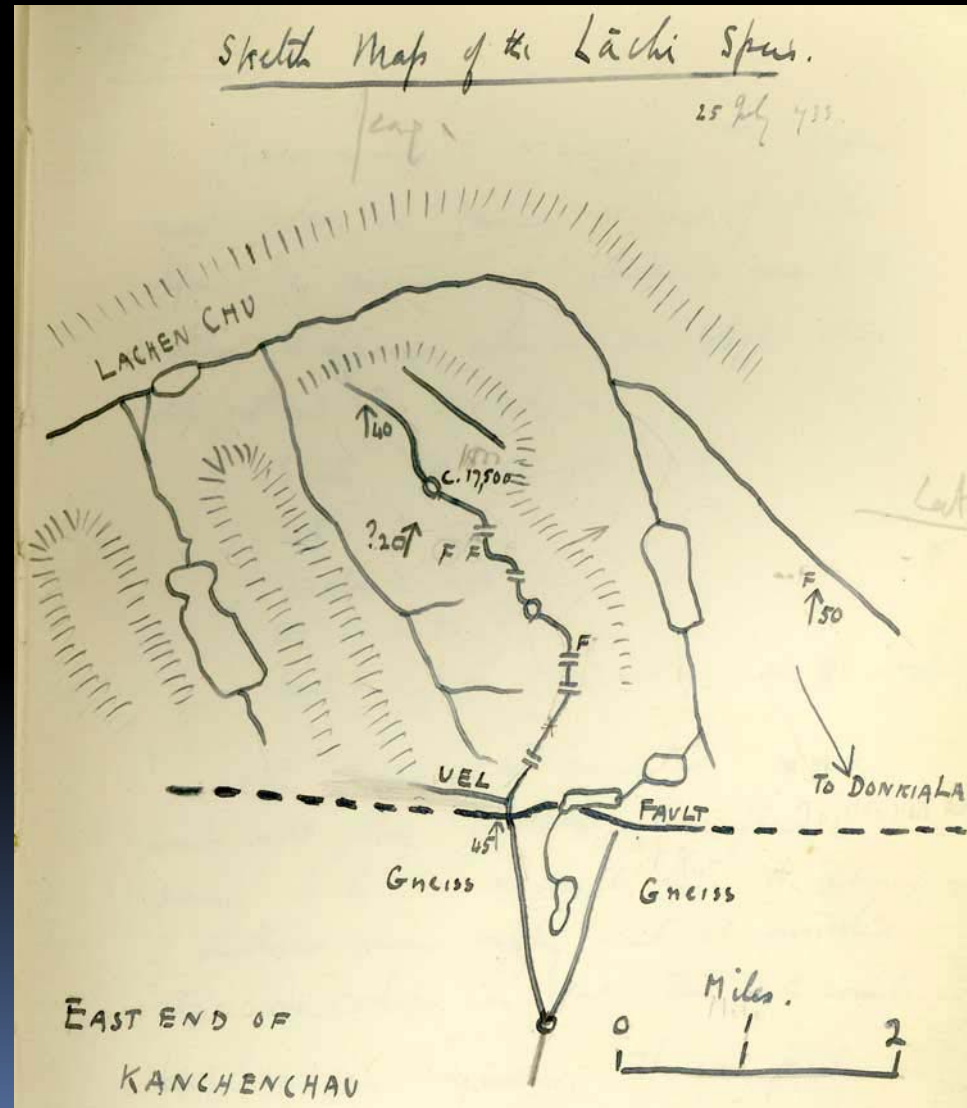 Sketch Map of the Lāchi Spur.
25 July
LACHEN CHU
↑40
C. 17,500
?20↑
F F
F
F
↑50
UEL
TO DONKIA LA
FAULT
45↑
Gneiss
Gneiss
Miles.
0 1 2
EAST END OF
KANCHENCHAU